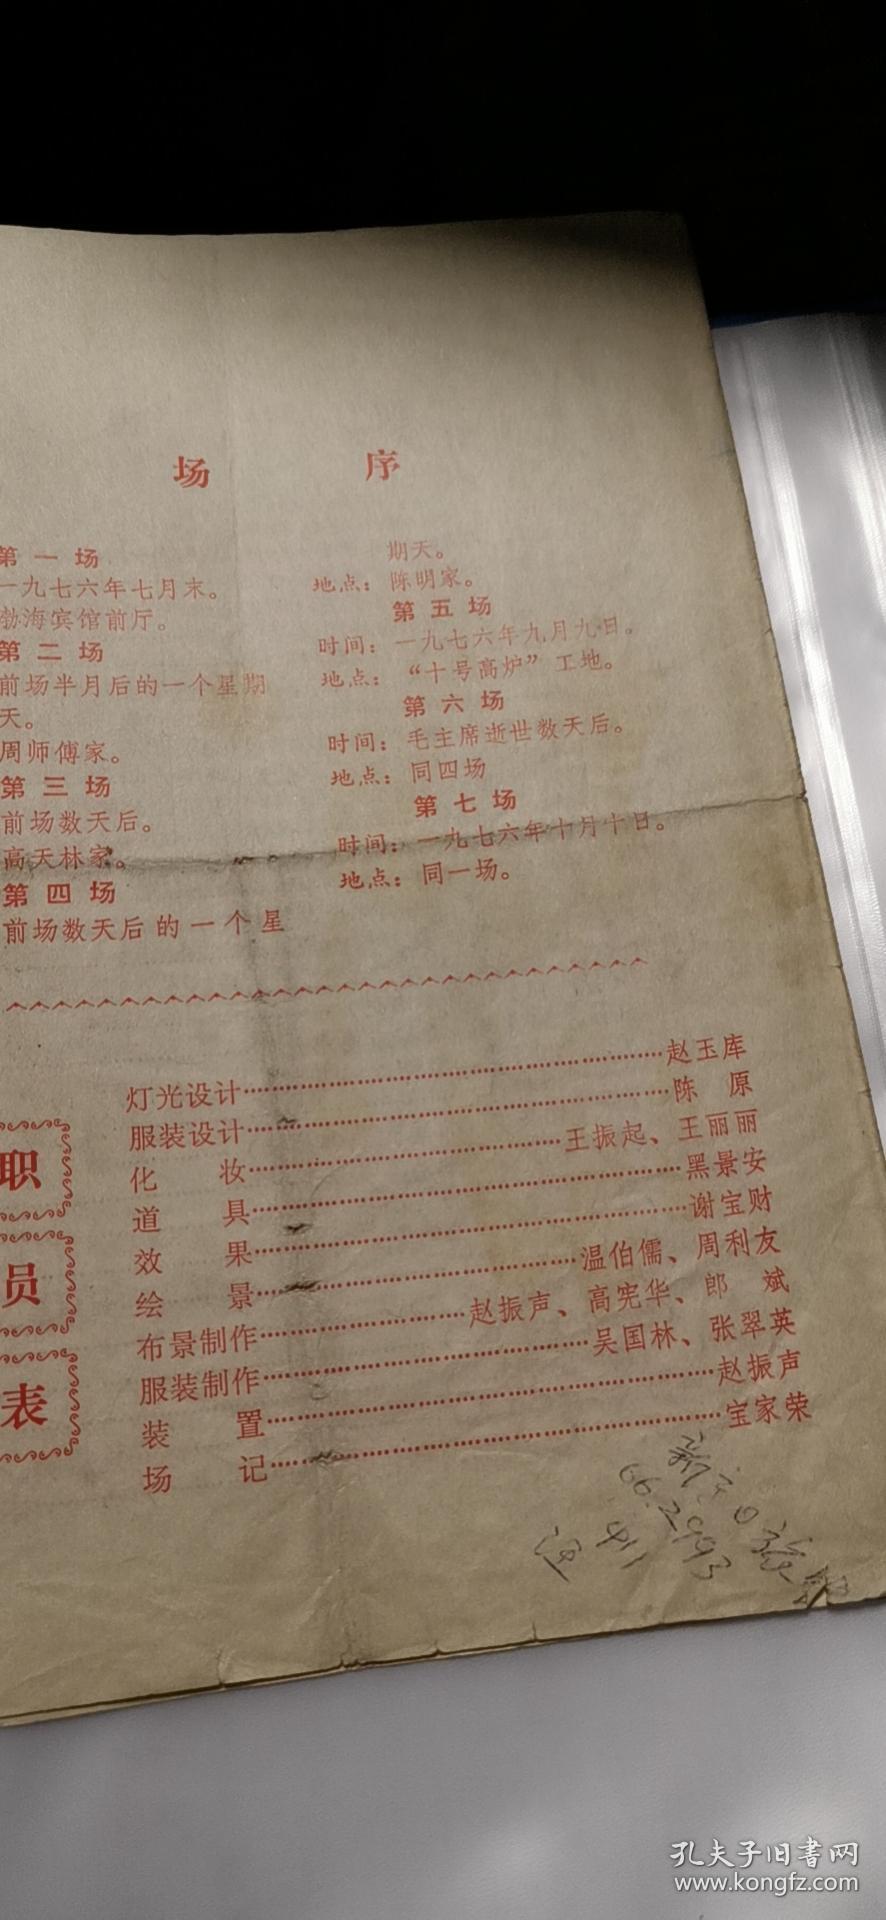 场 序
第一场
一九七六年七月末。
渤海宾馆前厅。
第二场
前场半月后的一个星期
天。
周师傅家。
第三场
前场数天后。
高天林家。
第四场
前场数天后的一个星
期天。
地点：陈明家。
第五场
时间：一九七六年九月九日。
地点：“十号高炉”工地。
第六场
时间：毛主席逝世数天后。
地点：同四场
第七场
时间：一九七六年十月十日。
地点：同一场。
职
员
表
灯光设计……赵玉库
服装设计……陈 原
化 妆……王振起、王丽丽
道 具……黑景安
效 果……谢宝财
绘 景……温伯儒、周利友
布景制作……赵振声、高宪华、郎 斌
服装制作……吴国林、张翠英
装 置……赵振声
场 记……宝家荣
66.2993
411
孔夫子旧书网
www.kongfz.com